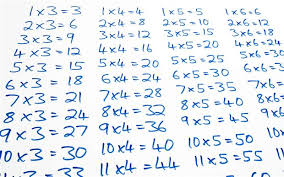 1×3=3
2×3=6
3×3=9
4×3=12
5×3=15
6×3=18
7×3=21
8×3=24
9×3=27
10×3=30
×3=33
1×4=4
2×4=8
3×4=12
4×4=16
5×4=20
6×4=24
7×4=28
8×4=32
9×4=36
10×4=40
11×4=44
1×5=5
2×5=10
3×5=15
4×5=20
5×5=25
6×5=30
7×5=35
8×5=40
9×5=45
10×5=50
11×5=55
1×6=6
2×6=12
3×6=
4×6=
5×6=
6×6=
7×6=
8×6=
9×6
10×
11×